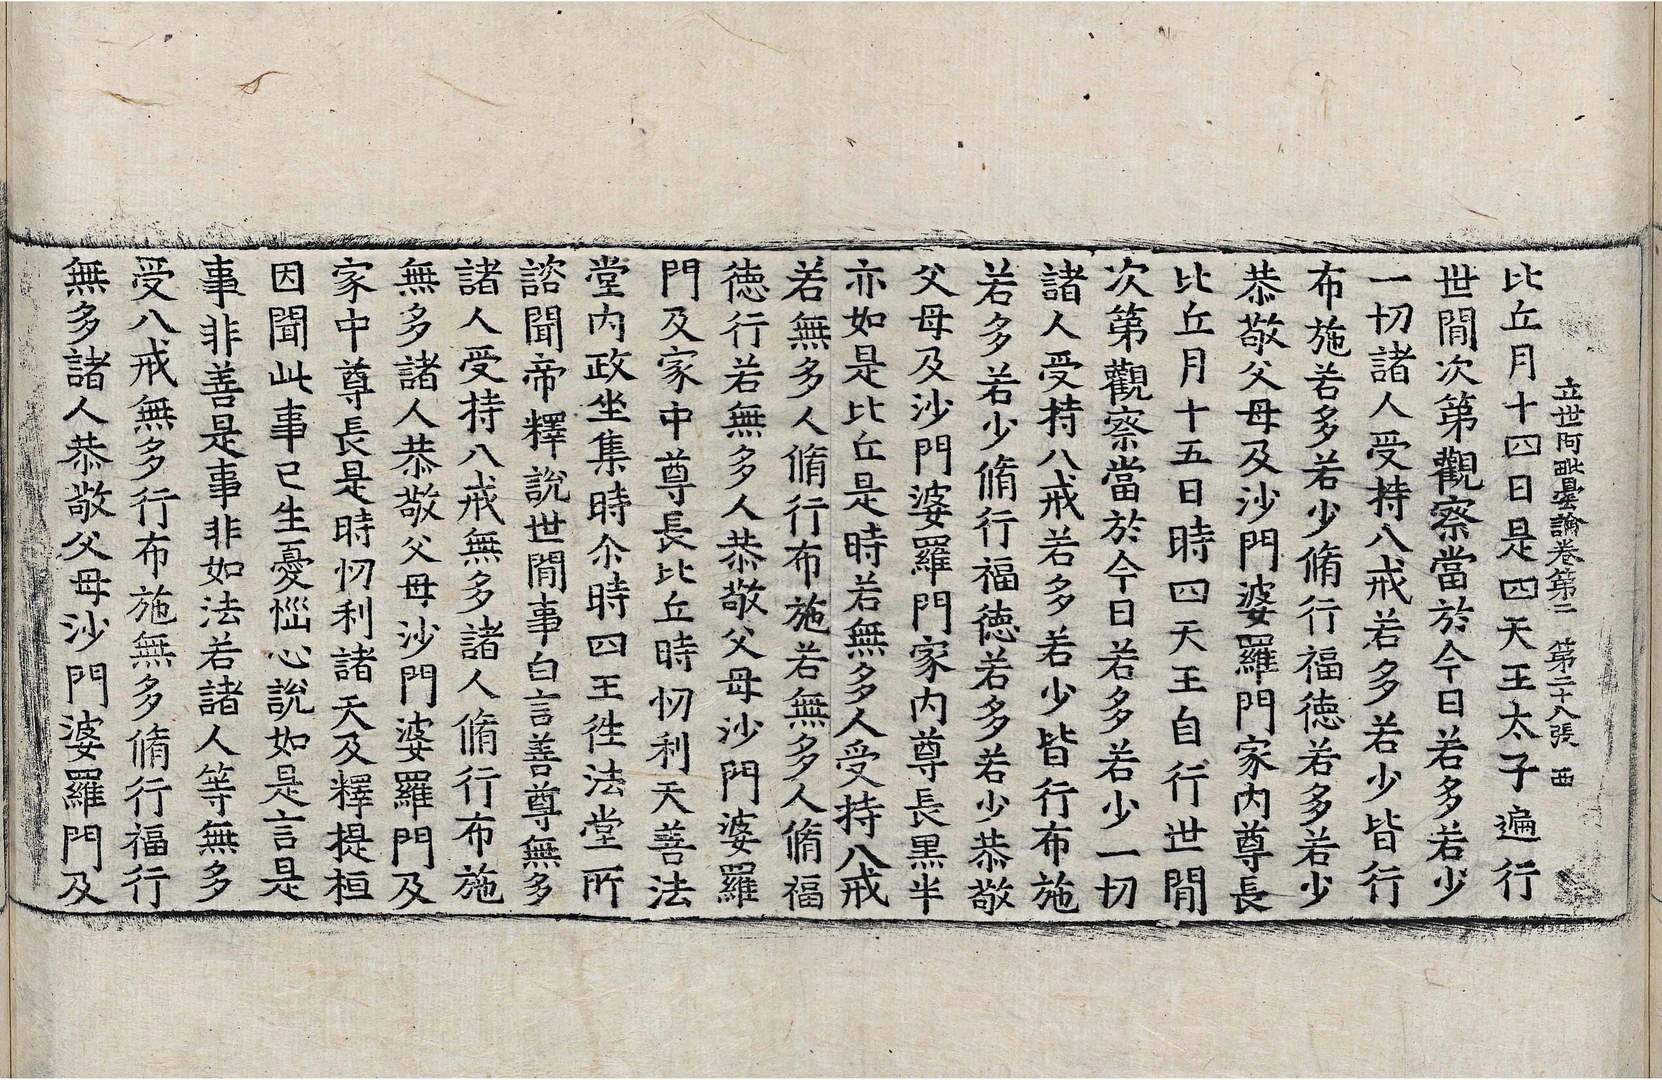 立世阿毗曇論卷第二 第二十八張 西
比丘月十四日是四天王太子遍行
世閒次第觀察當於今日若多若少
一切諸人受持八戒若多若少皆行
布施若多若少脩行福徳若多若少
恭敬父母及沙門婆羅門家内尊長
比丘月十五日時四天王自行世閒
次第觀察當於今日若多若少一切
諸人受持八戒若多若少皆行布施
若多若少脩行福徳若多若少恭敬
父母及沙門婆羅門家内尊長黒半
亦如是比丘是時若無多人受持八戒
若無多人脩行布施若無多人脩福
徳行若無多人恭敬父母沙門婆羅
門及家中尊長比丘時忉利天善法
堂内政坐集時尒時四王徃法堂所
諮聞帝釋說世閒事白言善尊無多
諸人受持八戒無多諸人脩行布施
無多諸人恭敬父母沙門婆羅門及
家中尊長是時忉利諸天及釋提桓
因聞此事已生憂惱心說如是言是
事非善是事非如法若諸人等無多
受八戒無多行布施無多脩行福行
無多諸人恭敬父母沙門婆羅門及